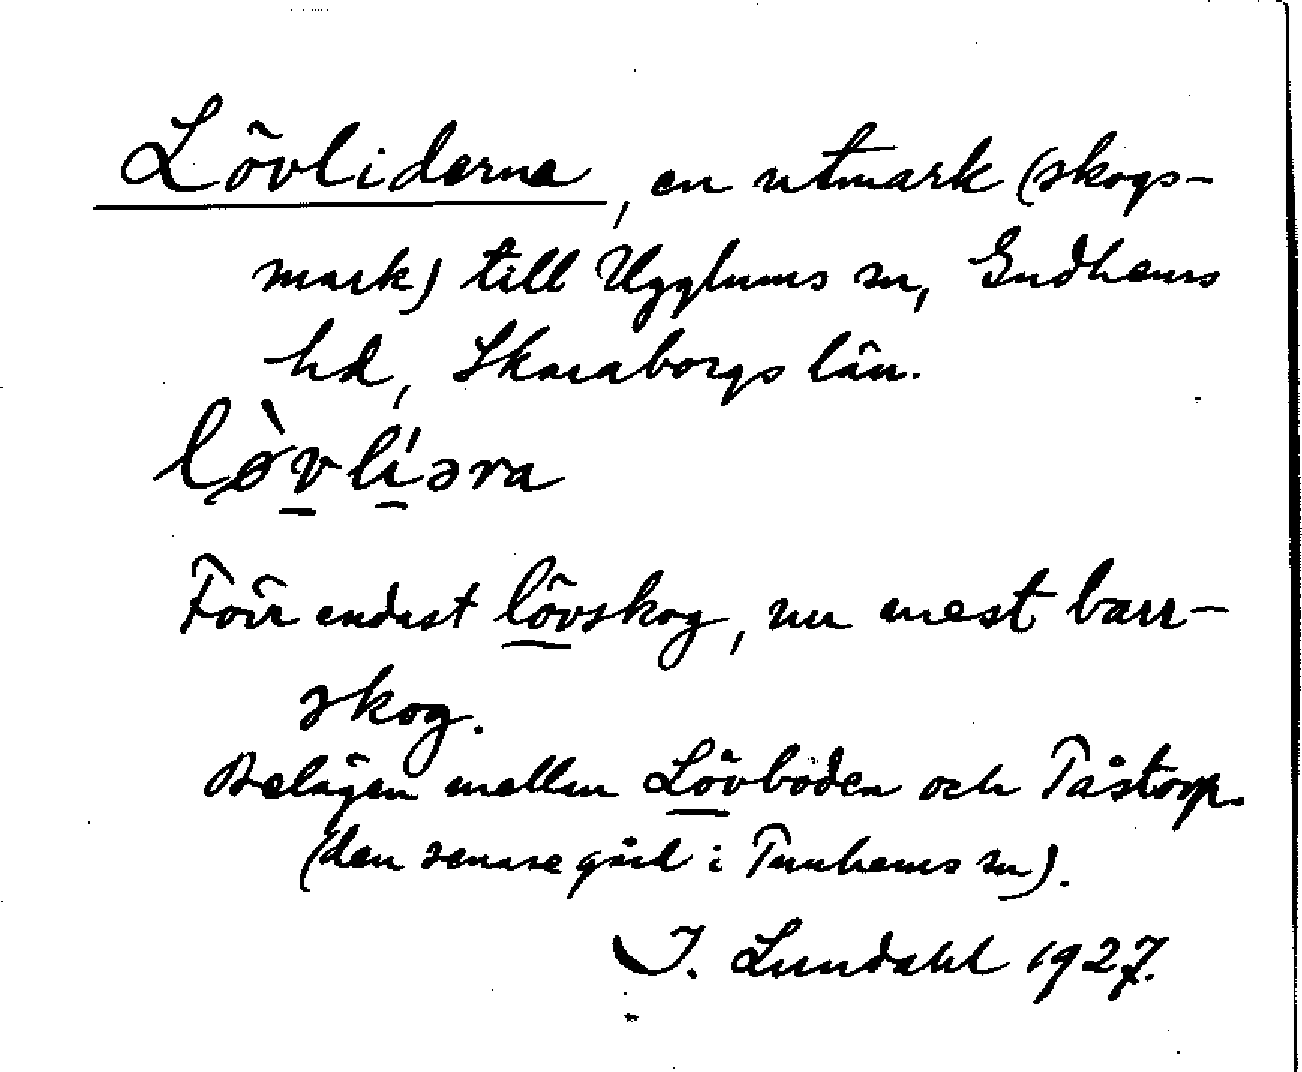 Lövliderna, en utmark (skogs-
mark) till Ugglums sn, Gudhems
hd, Skaraborgs län.
lø̀vlíəra
Förr endast lövskog, nu mest barr-
skog.
Belägen mellan Lövboden och Tåstorp.
(den senare gård i Tunhems sn).
I. Lundahl 1927.